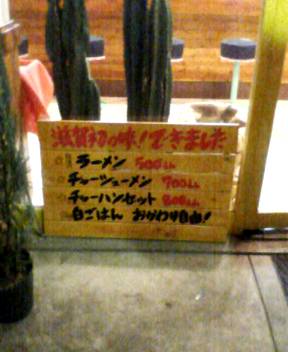 滋賀初の味!できました
ラーメン 500えん
チャーシューメン 700えん
チャーハンセット 800えん
白ごはん おかわり自由!